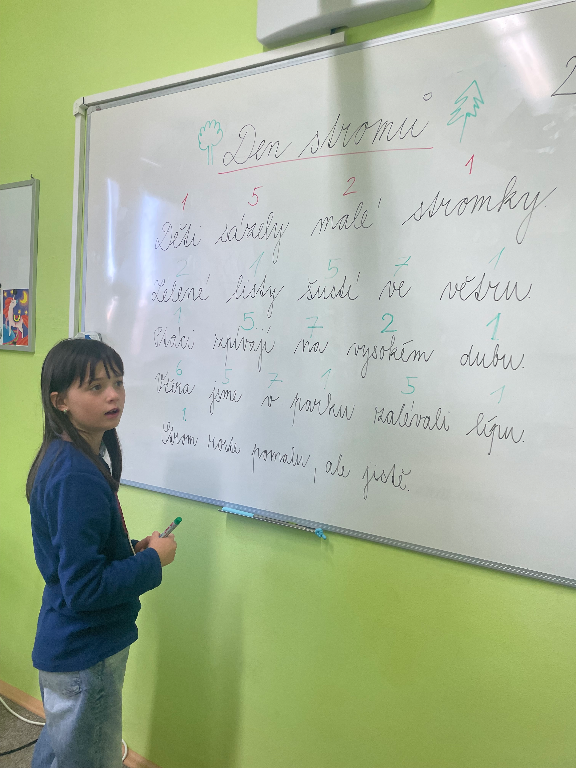 Den stromů
1 5 2 1
Děti sázely malé stromky.
2 1 5 7 1
Zelené listy šustí ve větru.
1 5 7 2 1
Ptáci zpívají na vysokém dubu.
6 5 7 1 5 1
Včera jsme v parku zalévali lípu.
1
Strom roste pomalu, ale jistě.
2